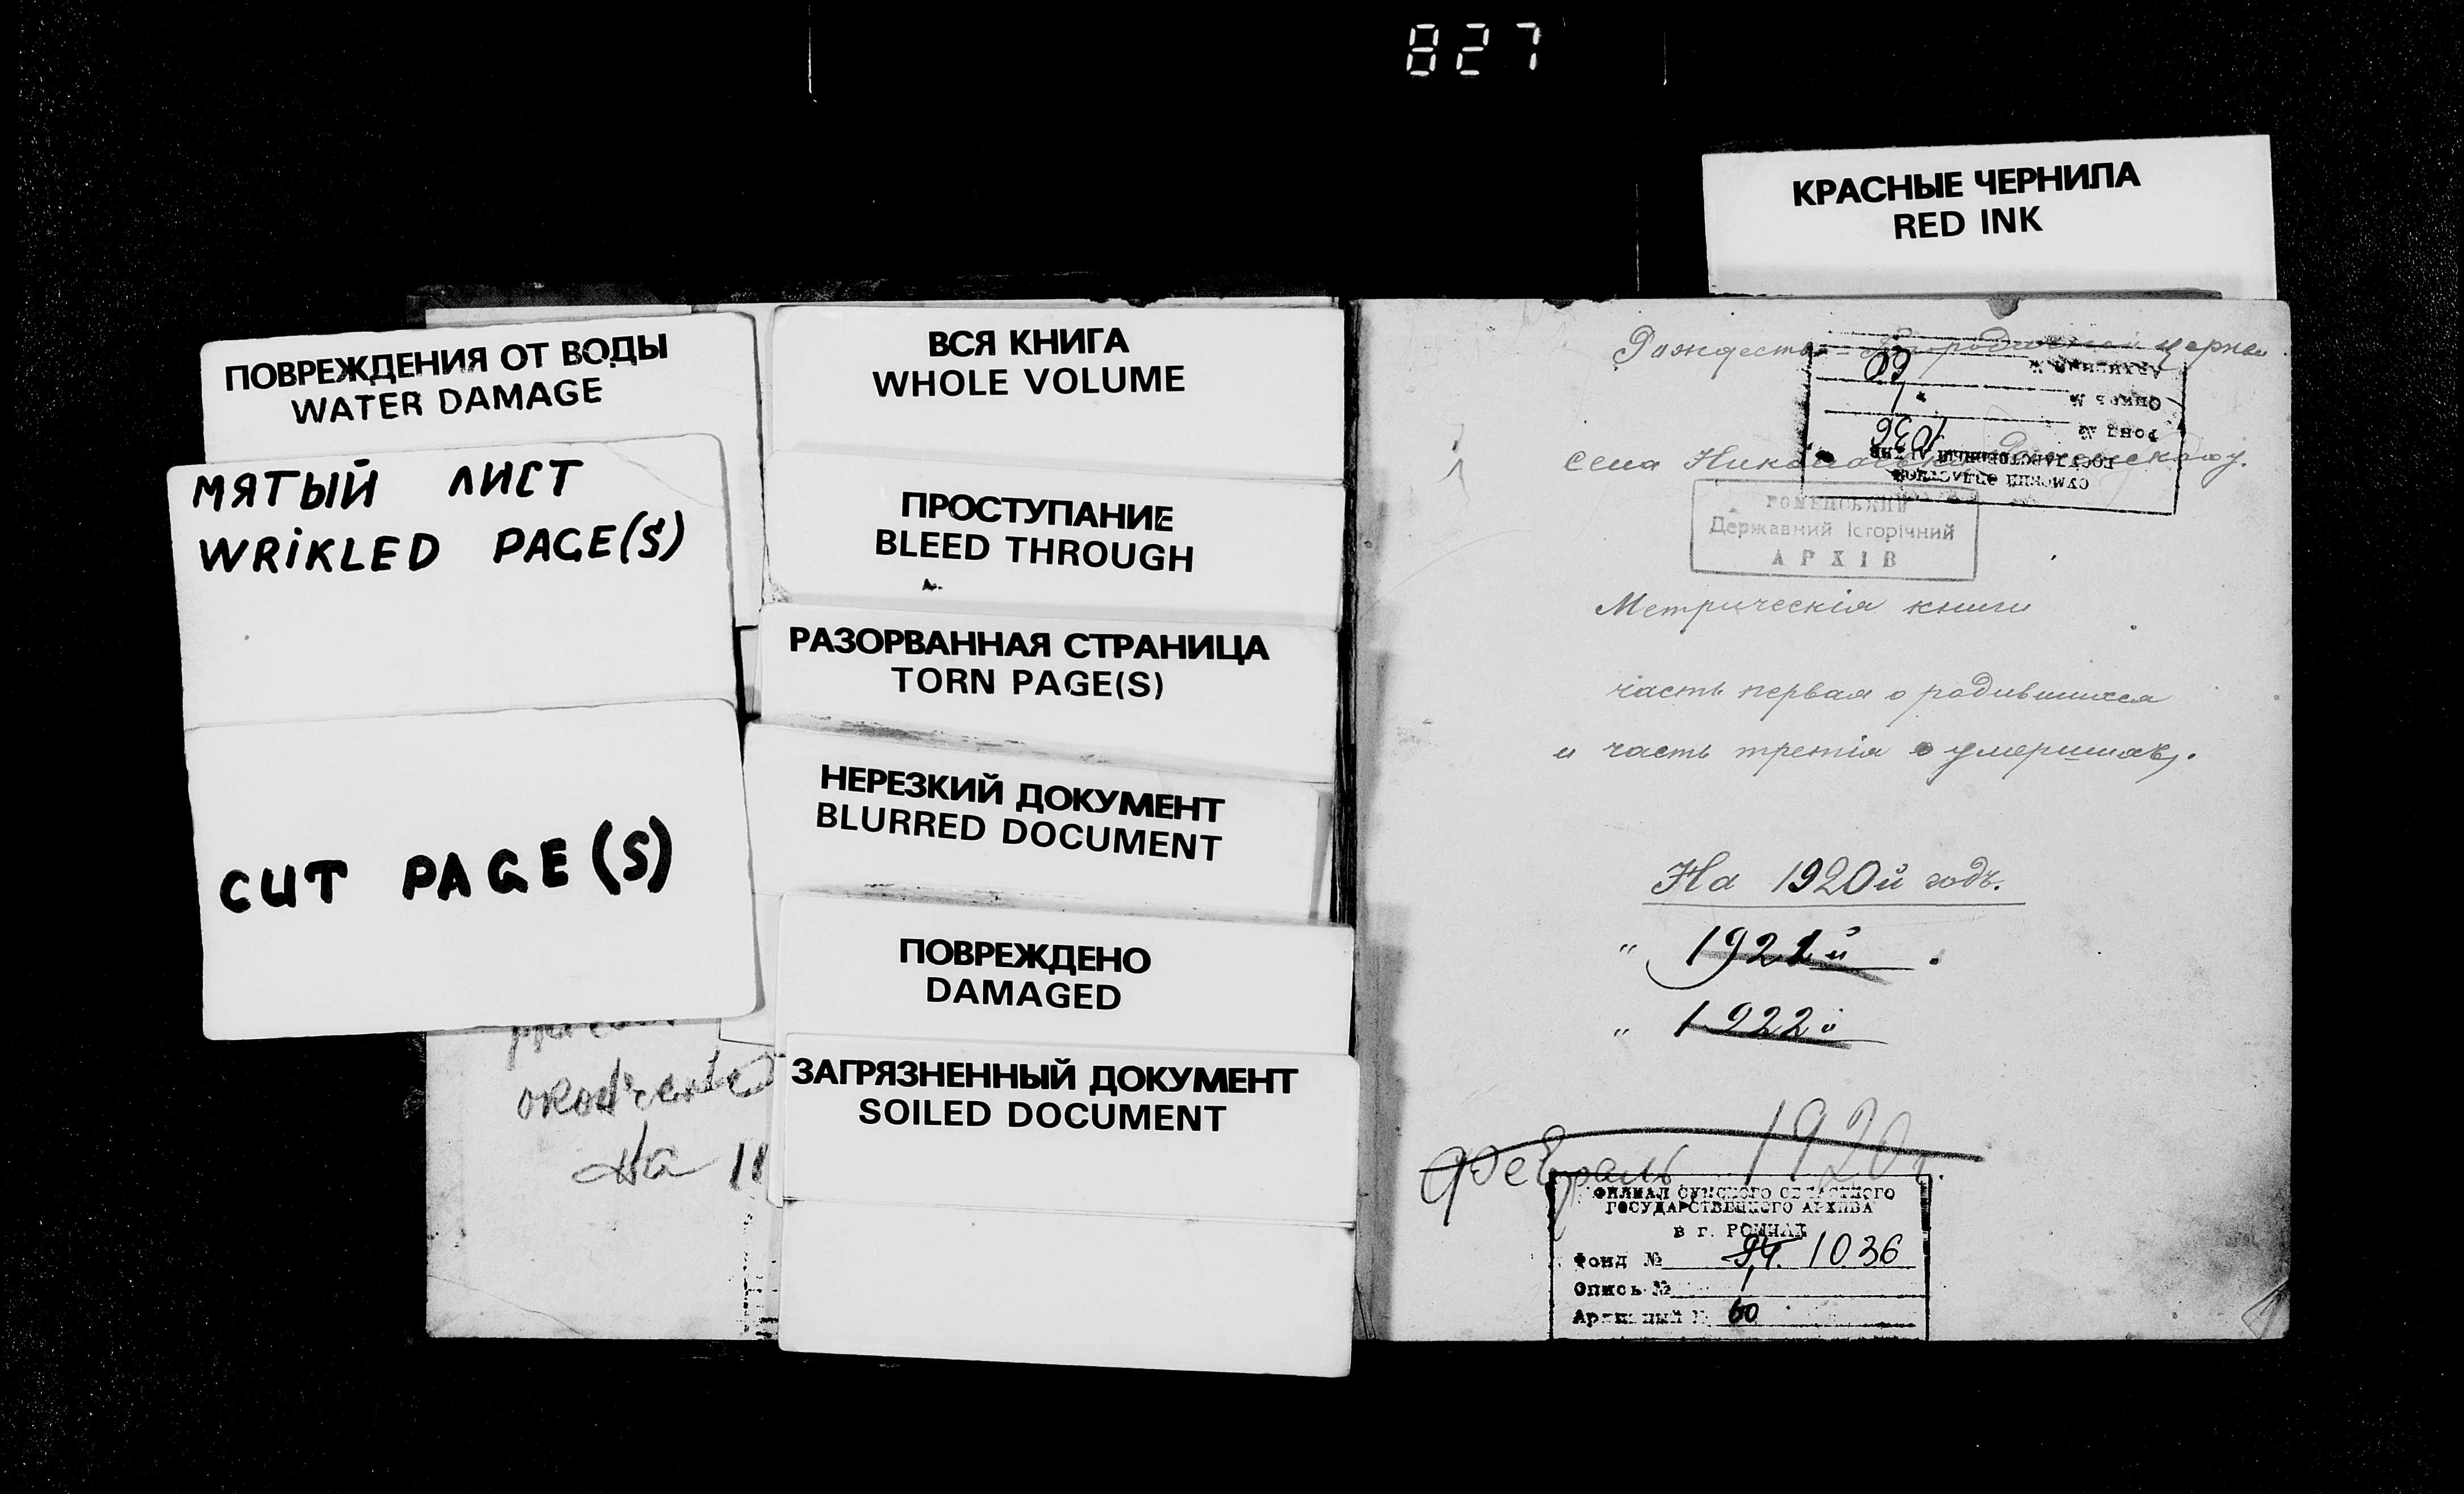 827
КРАСНЫЕ ЧЕРНИЛА
RED INK
ПОВРЕЖДЕНИЯ ОТ ВОДЫ
WATER DAMAGE
МЯТЫЙ ЛИСТ
WRiKLED PAGE(S)
CUT PAGE(S)
На 11
ВСЯ КНИГА
WHOLE VOLUME
ПРОСТУПАНИЕ
BLEED THROUGH
РАЗОРВАННАЯ СТРАНИЦА
TORN PAGE(S)
НЕРЕЗКИЙ ДОКУМЕНТ
BLURRED DOCUMENT
ПОВРЕЖДЕНО
DAMAGED
ЗАГРЯЗНЕННЫЙ ДОКУМЕНТ
SOILED DOCUMENT
Рождество-Богородичной церкви
села
СУМСКИЙ ОБЛАСТНОЙ
ГОСУДАРСТВЕННЫЙ АРХИВ
Фонд № 1036
Опись № 1
Архивный № 60
РОМЕНСЬКИЙ
Державний Історічний
АРХІВ
Метрическія книги
часть первая о родившихся
и часть третія о умершихъ.
На 1920й годъ.
" 1921й
" 1922й
февраль 1920 г.
ФИЛИАЛ СУМСКОГО ОБЛАСТНОГО
ГОСУДАРСТВЕННОГО АРХИВА
в г. РОМНАХ
Фонд № 94. 1036
Опись № 1
Архивный № 60